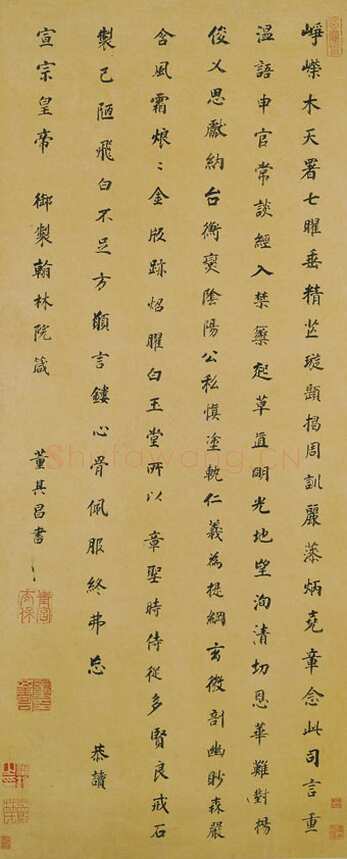 崢嶸木天署七曜垂精芒璇題揭周訓麗藻炳堯章念此司言重
溫語申官常談經入禁籞起草直明光地望洵清切恩華難對揚
俊乂思獻納台衡爕陰陽公私慎塗軌仁義為提綱玄微剖幽眇森嚴
含風霜烺〻金版跡炤曜白玉堂所以章聖時侍從多賢良戒石
製已陋飛白不足方願言鏤心骨佩服終弗忘 恭讀
宣宗皇帝 御製翰林院箴
董其昌書
Shufawang.CN